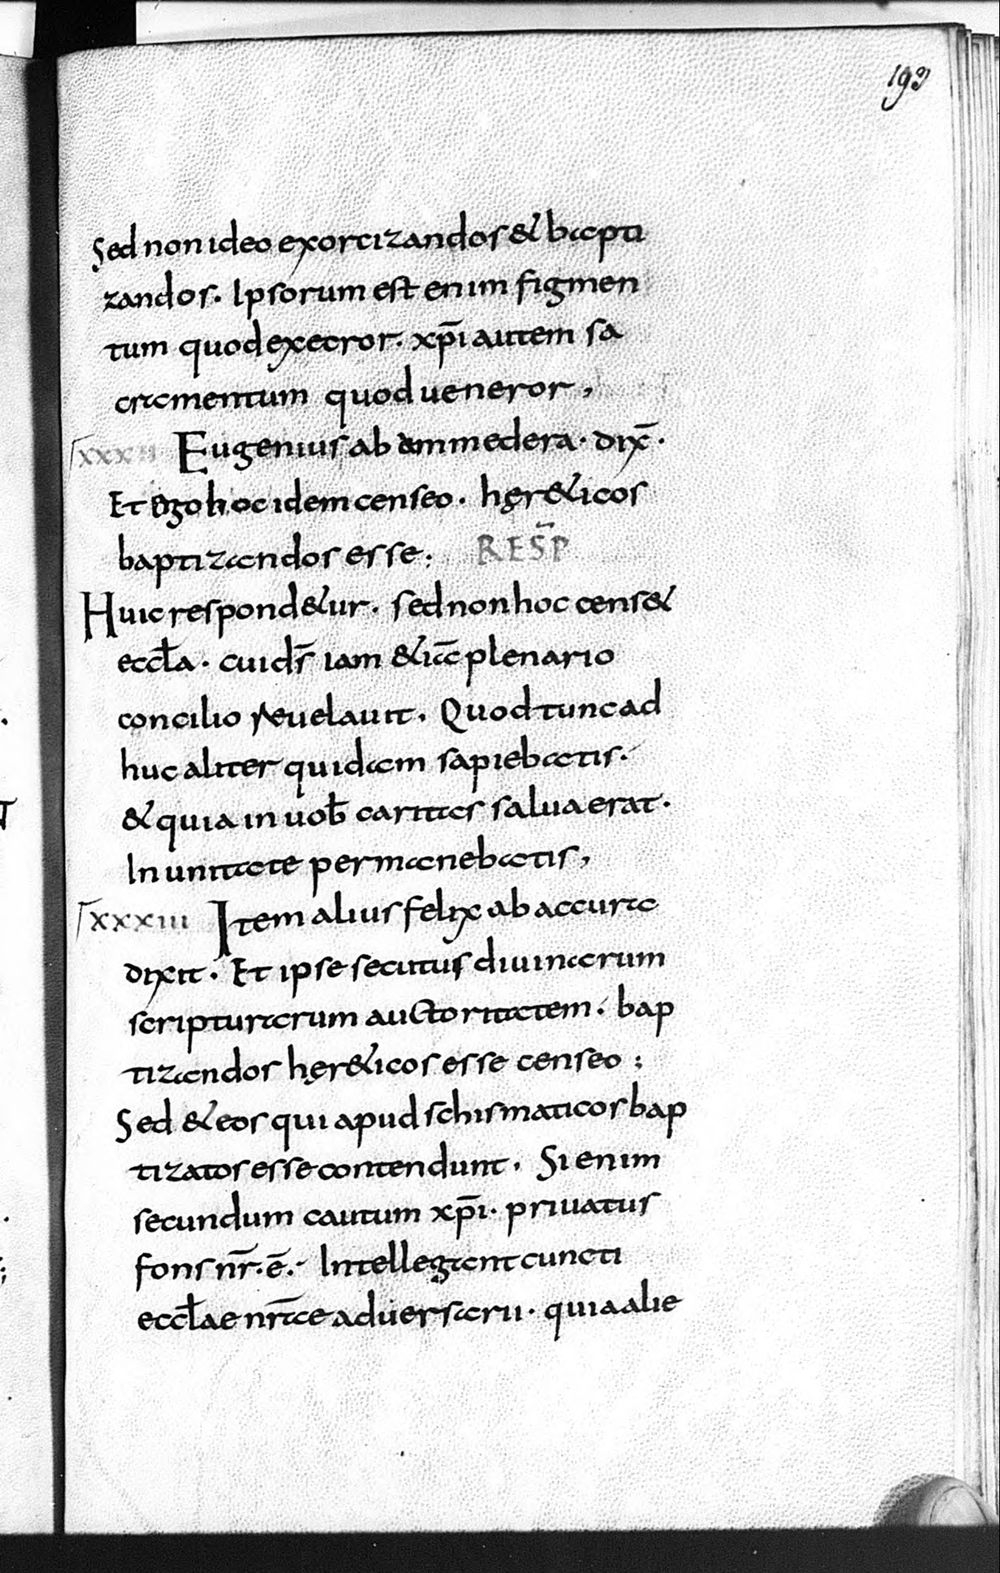 193
Sed non ideo exorcizandos & bapti
zandos. Ipsorum est enim figmen
tum quod execror. xp̄i autem sa
cramentum quod ueneror,
xxxii Eugenius ab ammedera. dix̄.
Et ego hoc idem censeo. hęr&icos
baptizandos esse; RES̄P
Huic respond&ur. sed non hoc cens&
eccl̄a. cui ds̄ iam &iā plenario
concilio reuelauit. Quod tunc ad
huc aliter quidam sapiebatis.
& quia in uob̄ caritas salua erat.
In unitate permanebatis,
xxxiii Item alius felix ab accura
dixit. Et ipse secutus diuinarum
scripturarum auctoritatem. bap
tizandos hęr&icos esse censeo;
Sed & eos qui apud schismaticos bap
tizatos esse contendunt. Si enim
secundum cautum xp̄i. priuatus
fons nr̄. ē. Intellegant cuncti
eccl̄ae nr̄ae aduersarii. quia alie